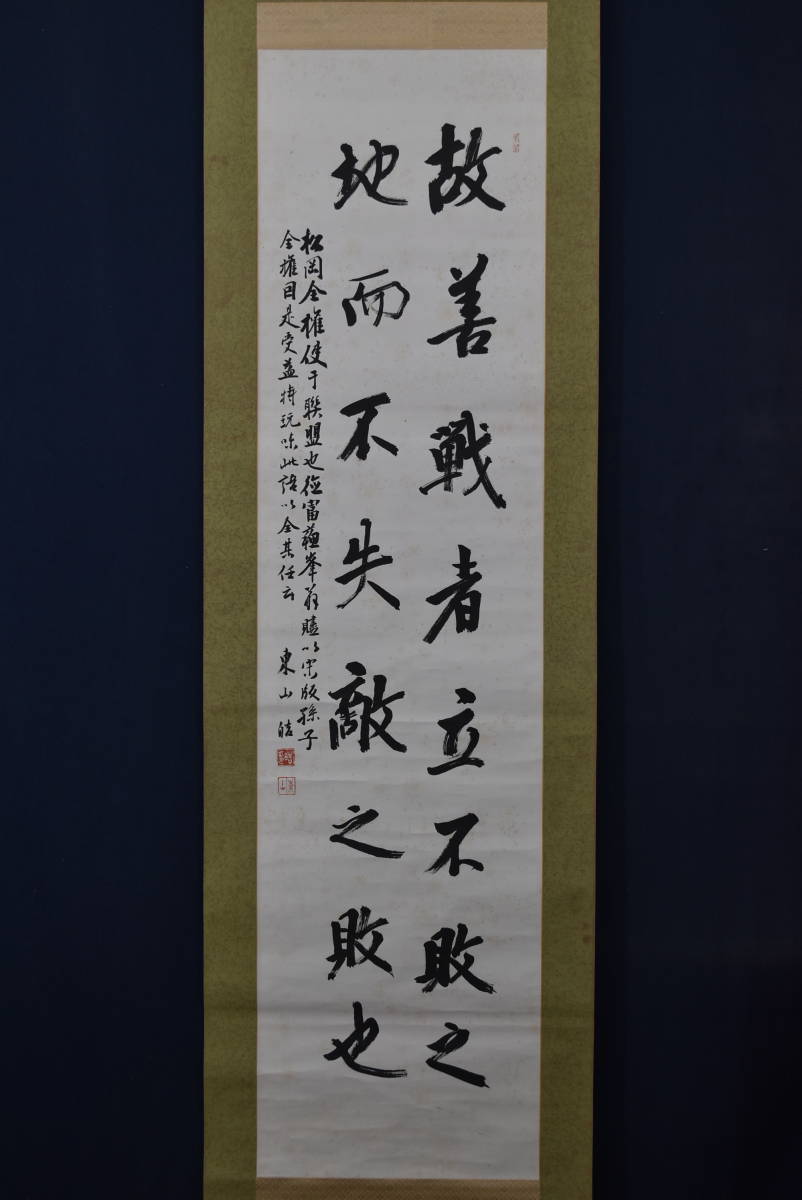 故善戰者立不敗之
地而不失敵之敗也
松岡全權使于聯盟也徳富蘇峯翁贐以宋版孫子
全權因是受益特玩味此語以全其任云 東山